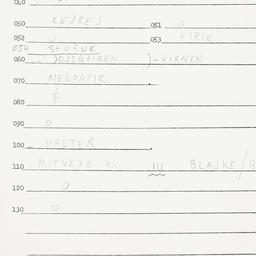 040
050 CEJREJ 051 0
052 0 053 KIRIK
054 STURUK
060 -VIRNEN
070 MEKPAPIR
080
090 0
100 HALTER
110 MITVEJE III BLAJKE/B
120 0
130 0